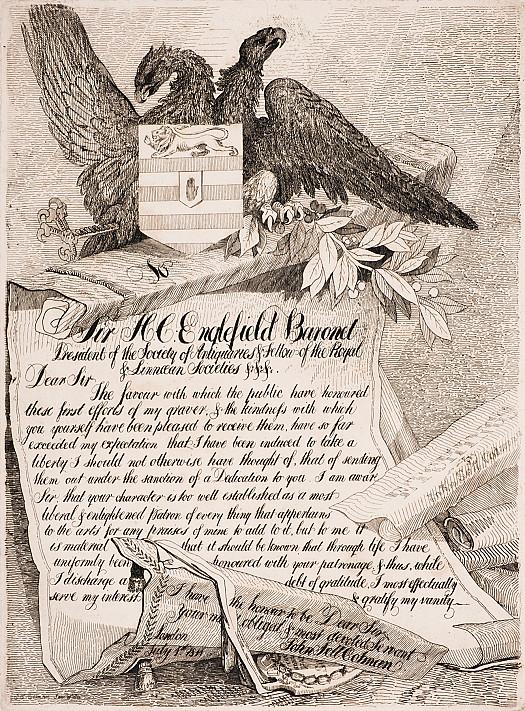 To
Sir H.C. Englefield Baronet
President of the Society of Antiquaries & Fellow of the Royal
& Linnæan Societies &&&.
Dear Sir
The favour with which the public have honoured
these first efforts of my graver, & the kindness with which
you yourself have been pleased to receive them, have so far
exceeded my expectation that I have been induced to take a
liberty I should not otherwise have thought of, that of sending
them out under the sanction of a Dedication to you I am aware
Sir, that your character is too well established as a most
liberal & enlightened patron of every thing that appertains
to the arts for any praises of mine to add to it, but to me it
is material that it should be known that through life I have
uniformly been honoured with your patronage & thus, while
I discharge a debt of gratitude, I most effectually
serve my interest & gratify my vanity
I have the honour to be Dear Sir
your m obliged & most devoted Servant
London John Sell Cotman
July 1st